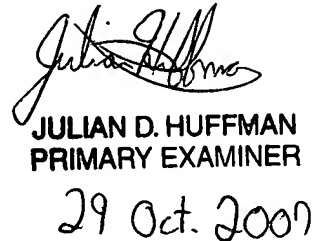 Julian Huffman
JULIAN D. HUFFMAN
PRIMARY EXAMINER
29 Oct. 2007